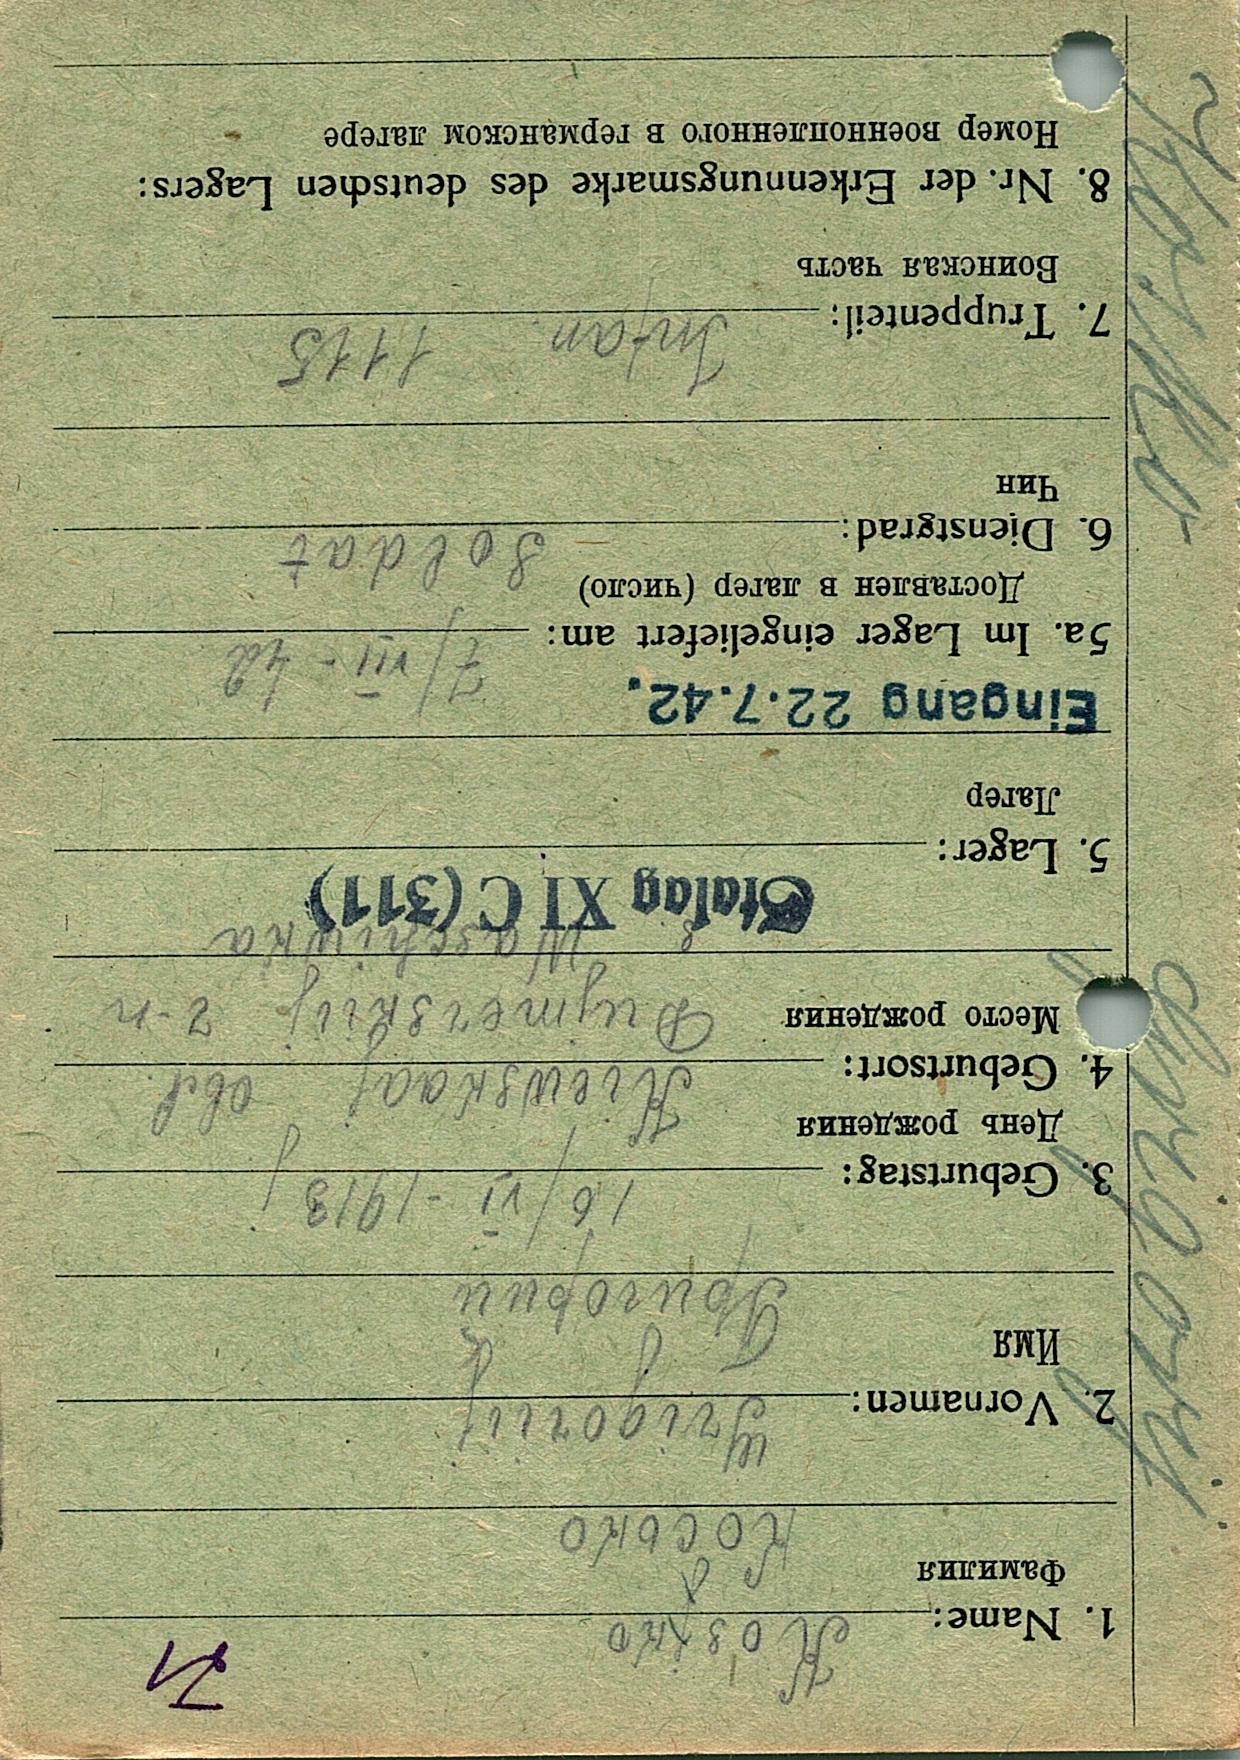 71
1. Name: Kosjko
Фамилия
Косько
2. Vornamen: Grigorij
Имя
Григорий
3. Geburtstag: 16/VI - 1913
День рождения
4. Geburtsort: Kiewskaaj obl.
Место рождения
Dymerskij r-n
Waschiwka
Stalag XI C (311)
5. Lager:
Лагер
Eingang 22.7.42.
5a. Im Lager eingeliefert am: 7/VII - 42
Доставлен в лагер (число)
6. Dienstgrad: Soldat
Чин
7. Truppenteil: Infan. 1115
Воинская часть
8. Nr. der Erkennungsmarke des deutschen Lagers:
Номер военнопленного в германском лагере
Grigorij